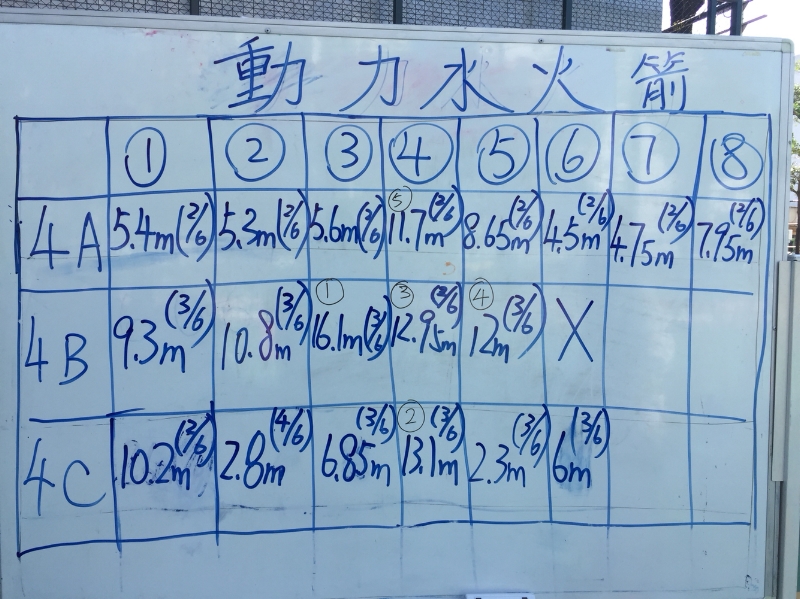 動力水火箭
① ② ③ ④ ⑤ ⑥ ⑦ ⑧
4A 5.4m(2/6) 5.3m(2/6) 5.6m(2/6) ⑤ 11.7m(2/6) 8.65m(2/6) 4.5m(2/6) 4.75m(2/6) 7.95m(2/6)
4B 9.3m(3/6) 10.8m(3/6) ① 16.1m(3/6) ③ 12.95m(3/6) ④ 12m(3/6) X
4C 10.2m(3/6) 2.8m(4/6) 6.85m(3/6) ② 13.1m(3/6) 2.3m(3/6) 6m(3/6)